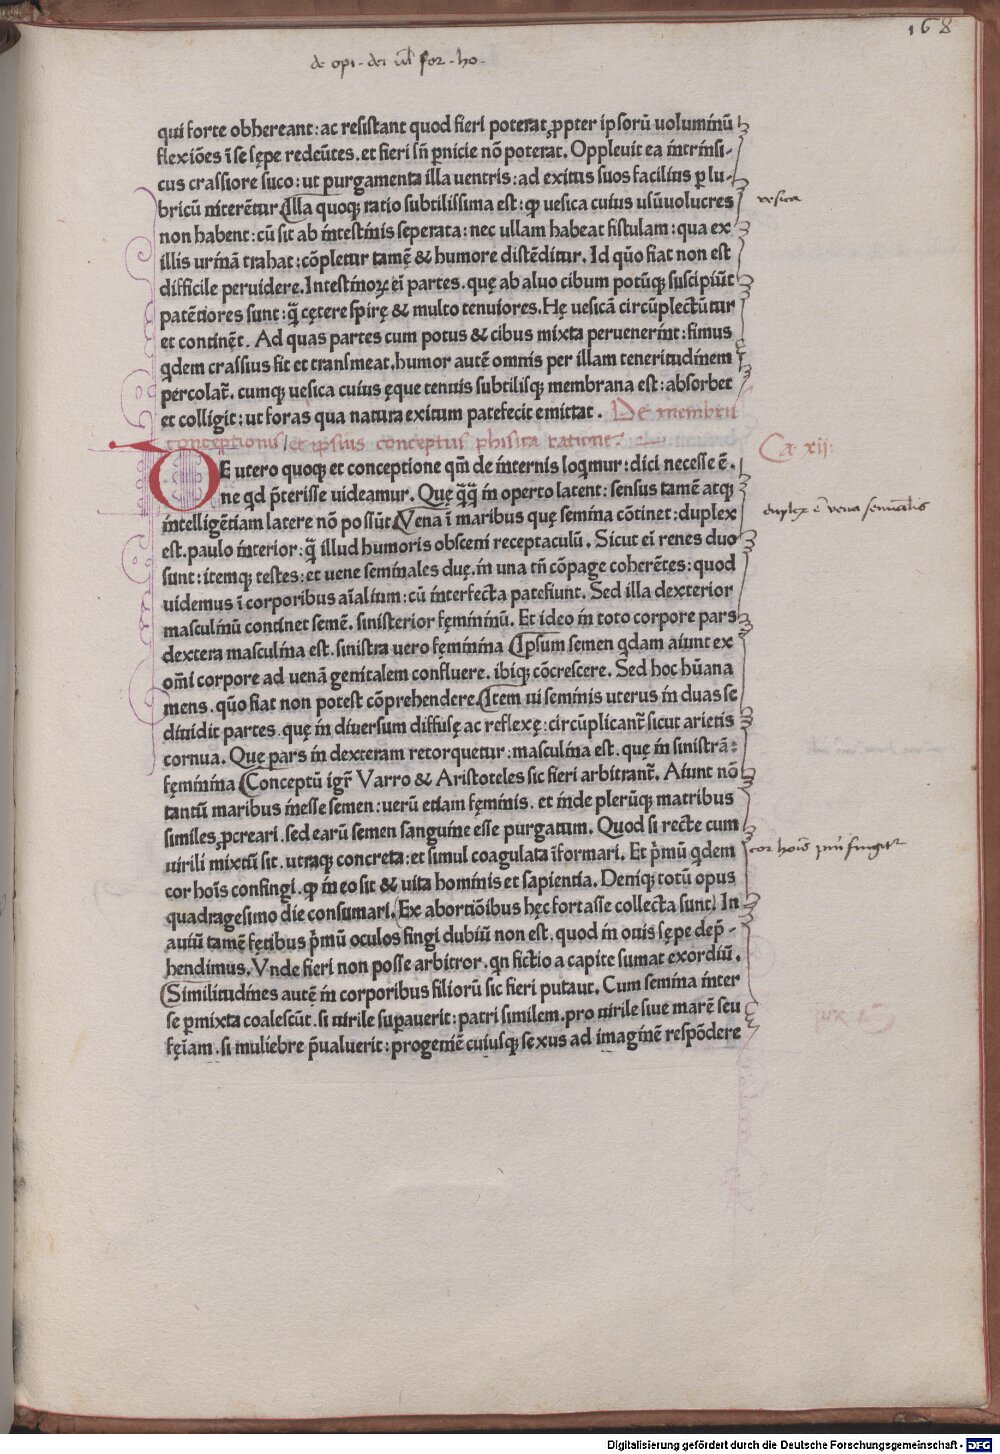 168
de opi. dei ul' for. ho.
qui forte obhereant: ac resistant quod fieri poterat ꝓpter ipsorū uoluminū
flexiōes ī se sępe redeūtes. et fieri sn̄ ꝑnicie nō poterat. Oppleuit ea intrinsi-
cus crassiore suco: ut purgamenta illa uentris: ad exitus suos facilius ꝑ lu-
bricū niterētur Illa quoqꝫ ratio subtilissima est: ꝙ uesica cuius usū uolucres
non habent: cū sit ab intestinis seperata: nec ullam habeat fistulam: qua ex
illis urinā trahat: cōpletur tamē & humore distēditur. Id qūo fiat non est
difficile peruidere. Intestinoꝝ ei partes. quę ab aluo cibum potūqꝫ suscipiūt
patētiores sunt: q̄ cętere spirę & multo tenuiores. Hę uesicā circūplectūtur
et continēt. Ad quas partes cum potus & cibus mixta peruenerint: fimus
qdem crassius fit et transmeat. humor autē omnis per illam teneritudinem
percolat̄. eumqꝫ uesica cuius ęque tenuis subtilisqꝫ membrana est: absorbet
et colligit: ut foras qua natura exitum patefecit emittat. De membris
conceptionis / et ipsius conceptus phisica ratione.
DE utero quoqꝫ et conceptione qm̄ de internis loqmur: dici necesse ē.
ne qd p̄terisse uideamur. Quę q̄q̄ in operto latent: sensus tamē atqꝫ
intelligētiam latere nō possūt Vena ī maribus quę semina cōtinet: duplex
est. paulo interior: q̄ illud humoris obsceni receptaculū. Sicut ei renes duo
sunt: itemqꝫ testes: et uene seminales duę. in una tn̄ cōpage coherētes: quod
uidemus ī corporibus aīalium: cū interfecta patefiunt. Sed illa dexterior
masculinū continet semē. sinisterior fęmininū. Et ideo in toto corpore pars
dextera masculina est. sinistra uero fęminina Ipsum semen qdam aiunt ex
om̄i corpore ad uenā genitalem confluere. ibiqꝫ cōcrescere. Sed hoc hūana
mens. qūo fiat non potest cōprehendere. Item ui seminis uterus in duas se
diuidit partes. quę in diuersum diffusę ac reflexę: circūplicant̄ sicut arietis
cornua. Quę pars in dexteram retorquetur: masculina est. quę in sinistrā:
fęminina Conceptū igr̄ Varro & Aristoteles sic fieri arbitrant̄. Aiunt nō
tantū maribus inesse semen: uerū etiam fęminis. et inde plerūqꝫ matribus
similes ꝓcreari. sed earū semen sanguine esse purgatum. Quod si recte cum
uirili mixtū sit. utraqꝫ concreta: et simul coagulata īformari. Et p̄mū qdem
cor hoīs confingi. ꝙ in eo sit & uita hominis et sapientia. Deniqꝫ totū opus
quadragesimo die consumari. Ex abortiōibus hęc fortasse collecta sunt In
auiū tamē fętibus p̄mū oculos fingi dubiū non est. quod in ouis sępe dep̄-
hendimus. Vnde fieri non posse arbitror. qn fictio a capite sumat exordiū.
Similitudines autē in corporibus filiorū sic fieri putaut. Cum semina inter
se ꝑmixta coalescūt. si uirile suꝑauerit: patri similem. pro uirile siue marē seu
fęīam. si muliebre p̄ualuerit: progeniē cuiusqꝫ sexus ad imaginē respōdere
vesica
Ca. xij.
duplex ē vena seminalis
cor hoīs
Digitalisierung gefördert durch die Deutsche Forschungsgemeinschaft - DFG